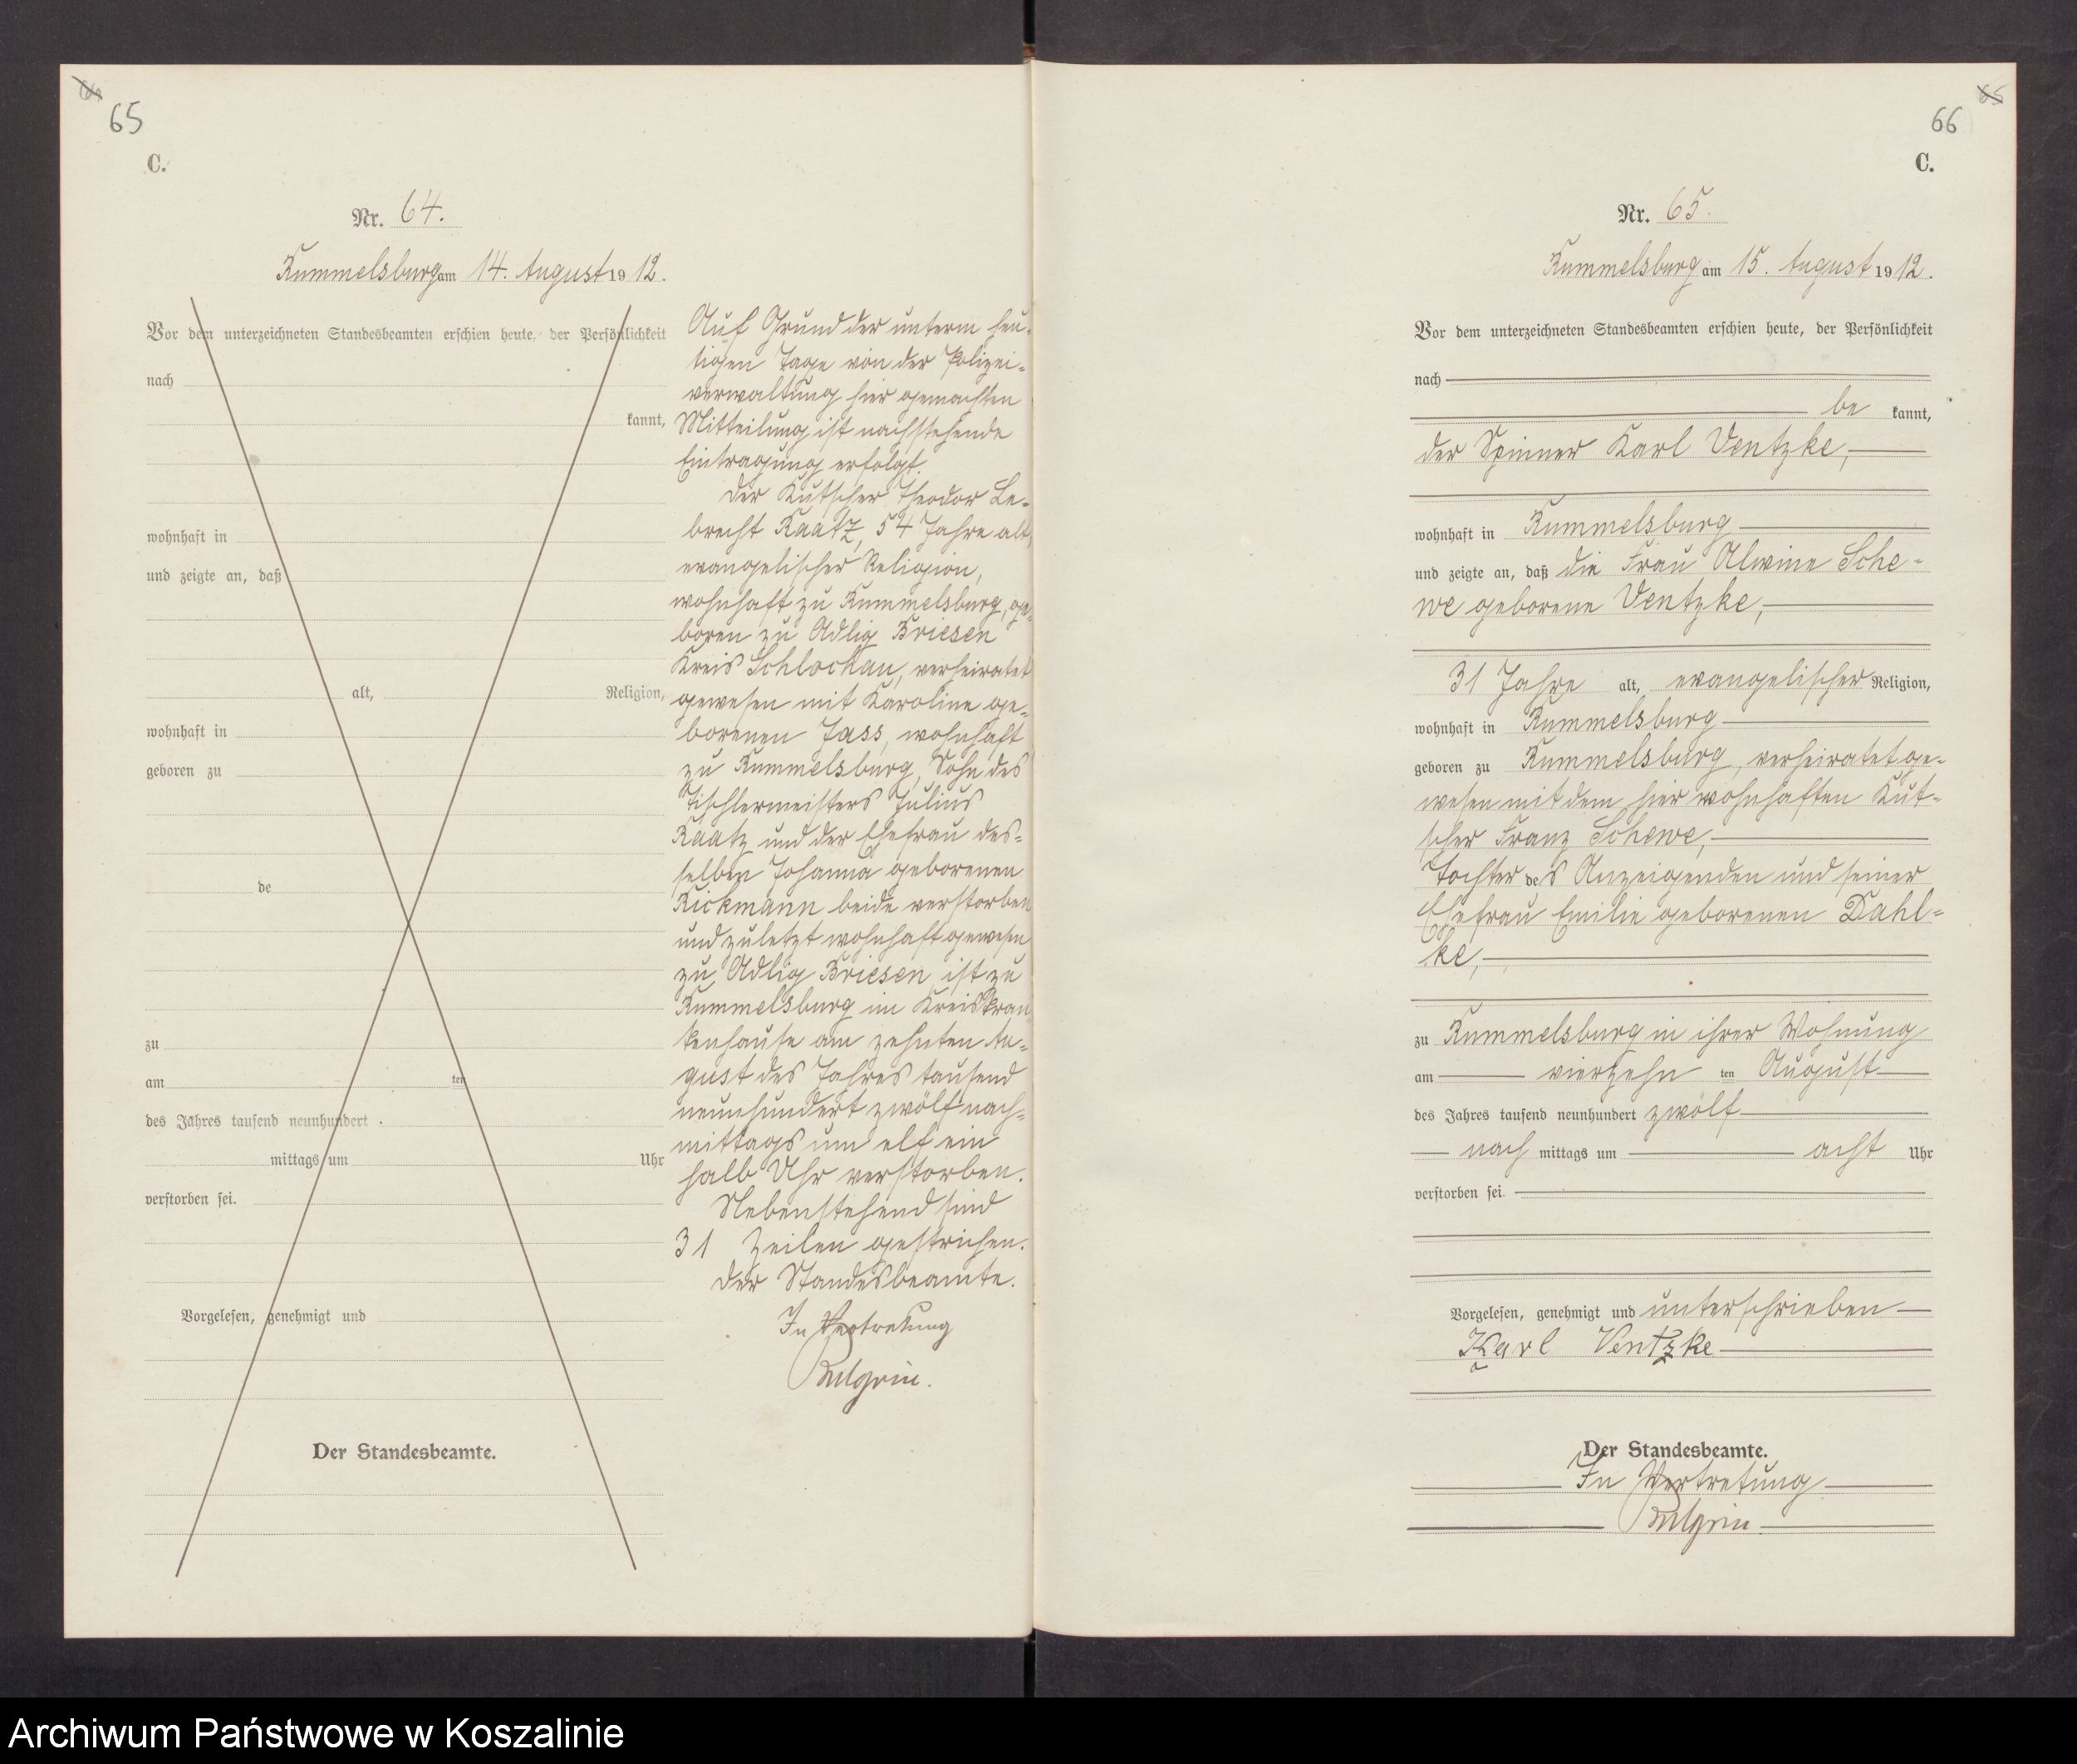 65
C.
Nr. 64.
Rummelsburg am 14. August 1912.
Vor dem unterzeichneten Standesbeamten erschien heute, der Persönlichkeit
nach
kannt,
wohnhaft in
und zeigte an, daß
alt, Religion,
wohnhaft in
geboren zu
de
zu
am ten
des Jahres tausend neunhundert
mittags um Uhr
verstorben sei.
Vorgelesen, genehmigt und
Der Standesbeamte.
Auf Grund der unterm heu-
tigen Tage von der Polizei-
verwaltung hier gemachten
Mitteilung ist nachstehende
Eintragung erfolgt.
Der Kutscher Theodor Le-
brecht Kaatz, 54 Jahre alt,
evangelischer Religion,
wohnhaft zu Rummelsburg, ge-
boren zu Adlig Briesen
Kreis Schlochau, verheiratet
gewesen mit Karoline ge-
borenen Jass, wohnhaft
zu Rummelsburg, Sohn des
Tischlermeisters Julius
Kaatz und der Ehefrau des-
selben Johanna geborenen
Rickmann beide verstorben
und zuletzt wohnhaft gewesen
zu Adlig Briesen ist zu
Rummelsburg im Kreiskran-
kenhause am zehnten Au-
gust des Jahres tausend
neunhundert zwölf nach-
mittags um elf ein
halb Uhr verstorben.
Nebenstehend sind
31 Zeilen gestrichen.
Der Standesbeamte.
In Vertretung
66
C.
Nr. 65.
Rummelsburg am 15. August 1912.
Vor dem unterzeichneten Standesbeamten erschien heute, der Persönlichkeit
nach
be kannt,
der Spinner Karl Ventzke,
wohnhaft in Rummelsburg
und zeigte an, daß die Frau Alwine Sche-
we geborene Ventzke,
31 Jahre alt, evangelischer Religion,
wohnhaft in Rummelsburg
geboren zu Rummelsburg, verheiratet ge-
wesen mit dem hier wohnhaften Kut-
scher Franz Schewe,
Tochter des Anzeigenden und seiner
Ehefrau Emilie geborenen Dahl-
ke,
zu Rummelsburg in ihrer Wohnung
am vierzehn ten August
des Jahres tausend neunhundert zwölf
nach mittags um acht Uhr
verstorben sei.
Vorgelesen, genehmigt und unterschrieben
Karl Ventzke
Der Standesbeamte.
In Vertretung
Archiwum Państwowe w Koszalinie